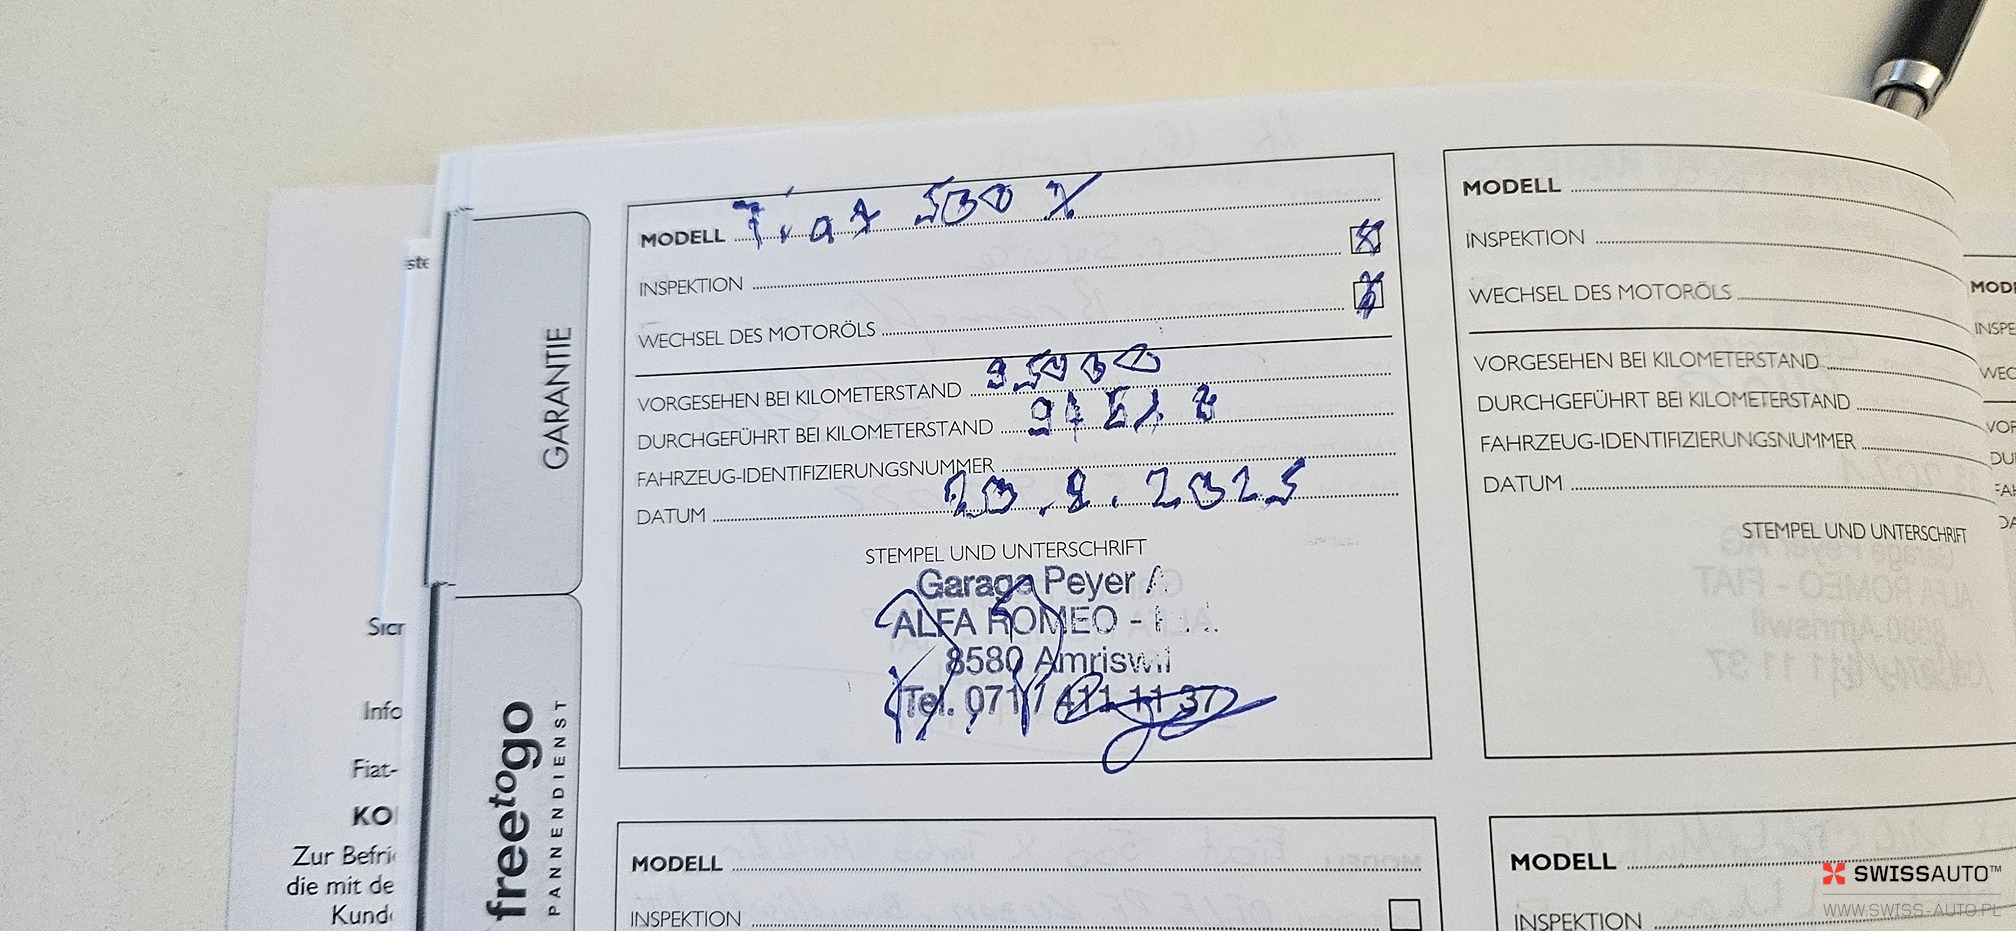 GARANTIE
freetogo
PANNENDIENST
ste
Info
Fiat-
KO
Zur Befri
die mit de
Kund
MODELL Fiat 500 X
INSPEKTION
WECHSEL DES MOTORÖLS
VORGESEHEN BEI KILOMETERSTAND 95000
DURCHGEFÜHRT BEI KILOMETERSTAND
FAHRZEUG-IDENTIFIZIERUNGSNUMMER
DATUM 20.8.2025
STEMPEL UND UNTERSCHRIFT
Garage Peyer A
ALFA ROMEO -
8580 Amriswil
Tel. 071 / 411 11 37
MODELL
INSPEKTION
MODELL
INSPEKTION
WECHSEL DES MOTORÖLS
VORGESEHEN BEI KILOMETERSTAND
DURCHGEFÜHRT BEI KILOMETERSTAND
FAHRZEUG-IDENTIFIZIERUNGSNUMMER
DATUM
STEMPEL UND UNTERSCHRIFT
MODELL
INSPEKTION
MOD
INSPE
WEC
VOR
DU
FAH
DA
SWISSAUTO™
WWW.SWISS-AUTO.PL